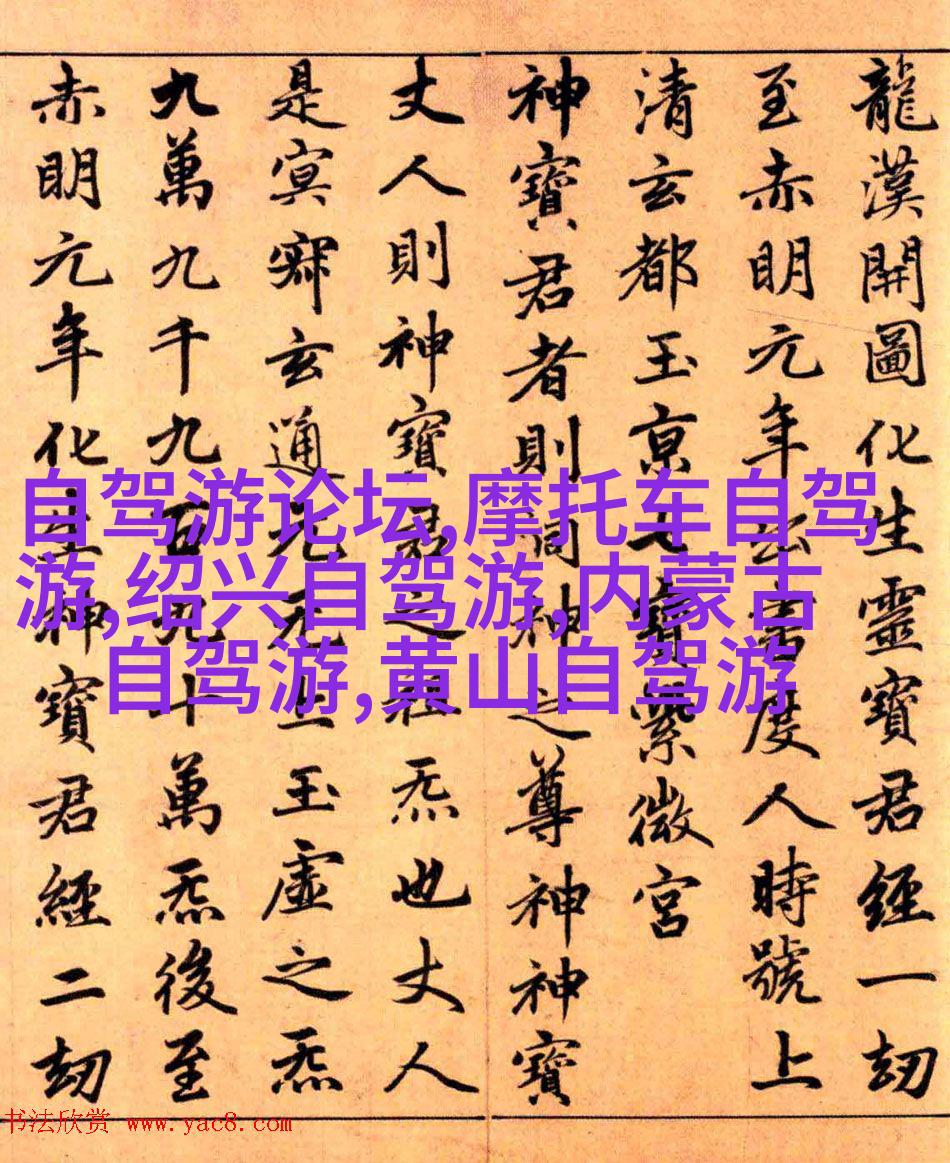 龍漢開圖化生靈寶君經一劫
至赤明元年出書度人時號上
清玄都玉京七寶紫微宮
神寶君者則洞神之尊神神寶
丈人則神寶君之祖炁也丈人
是冥寂玄通元无上玉虛之炁
九萬九千九百九十萬炁後至
赤明元年化生神寶君經二劫
自驾游论坛,摩托车自驾
游,绍兴自驾游,内蒙古
自驾游,黄山自驾游
书法欣赏 www.yac8.com